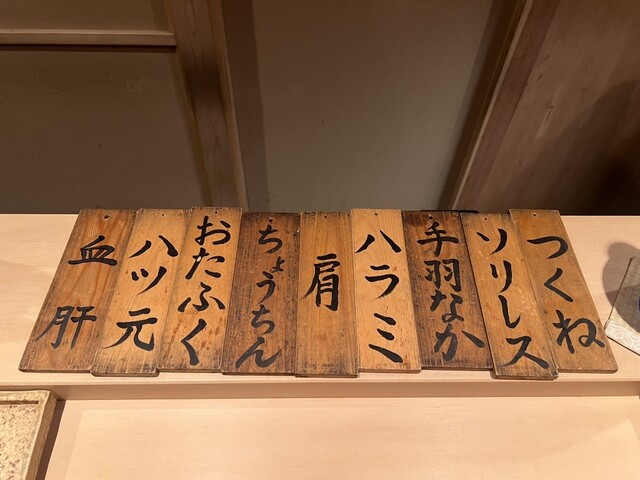 つくね
ソリレス
手羽なか
ハラミ
肩
ちょうちん
おたふく
ハツ元
血肝